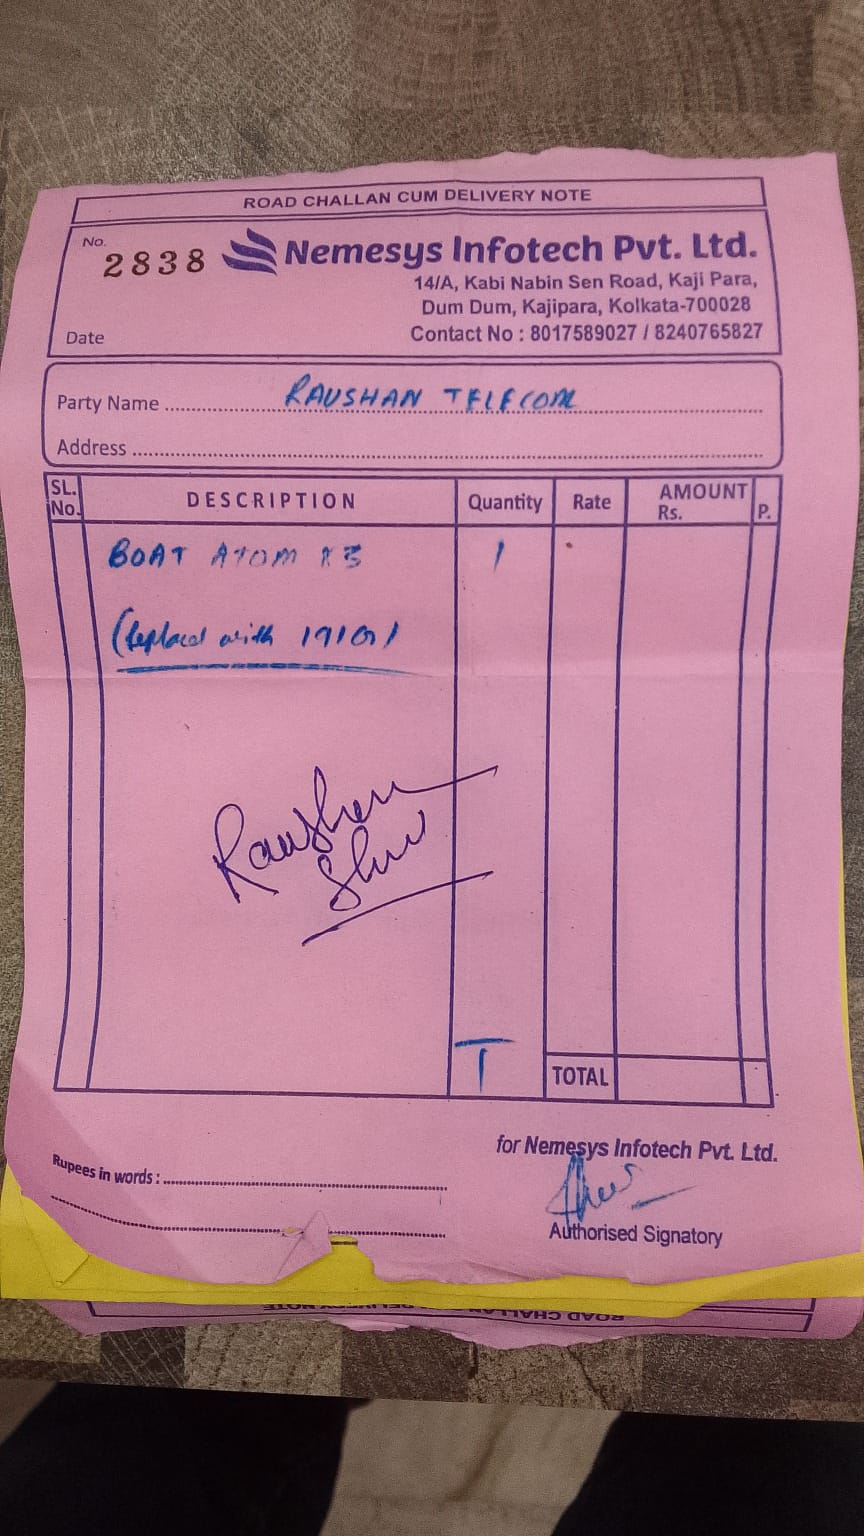 ROAD CHALLAN CUM DELIVERY NOTE
No. 2838
Nemesys Infotech Pvt. Ltd.
14/A, Kabi Nabin Sen Road, Kaji Para,
Dum Dum, Kajipara, Kolkata-700028
Date
Contact No : 8017589027 / 8240765827
Party Name RAUSHAN TELECOM
Address
SL. No. DESCRIPTION Quantity Rate AMOUNT Rs. P.
BOAT ATOM 1
with
Raushan
TOTAL
for Nemesys Infotech Pvt. Ltd.
Rupees in words :
Authorised Signatory
ROAD CHALLAN CUM DELIVERY NOTE